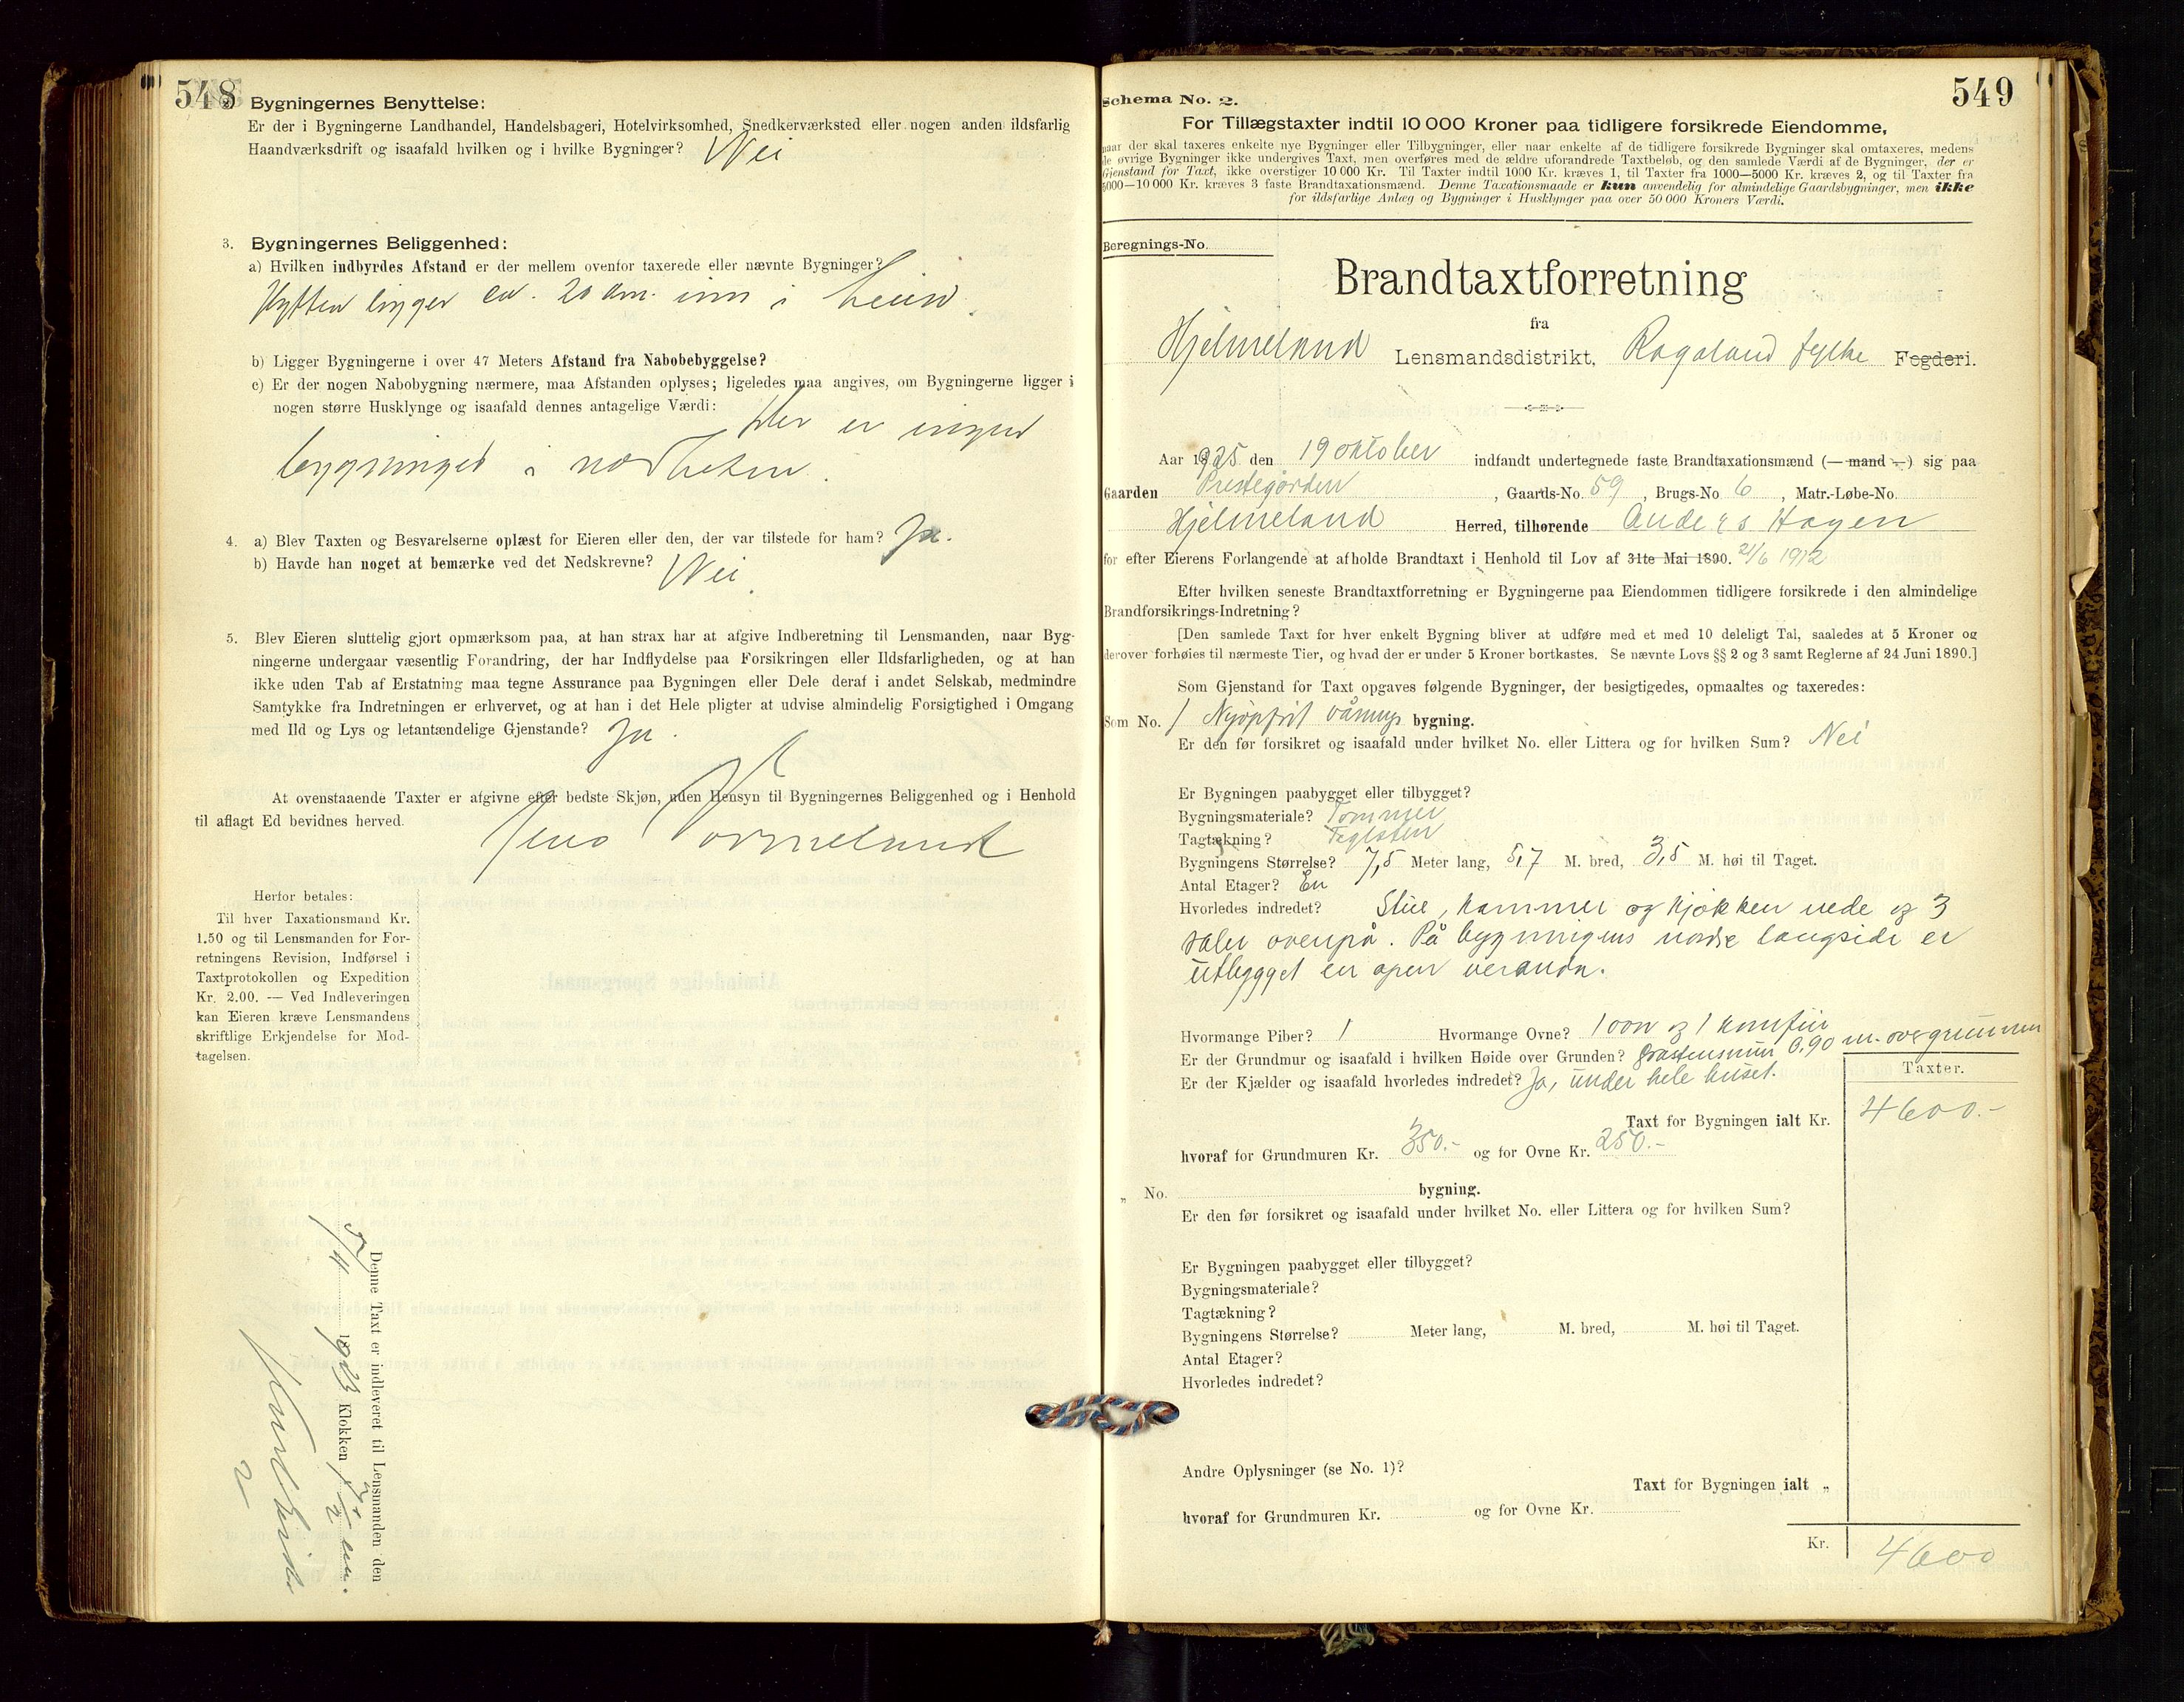 548
Bygningernes Benyttelse:
Er der i Bygningerne Landhandel, Handelsbageri, Hotelvirksomhed, Snedkerværksted eller nogen anden ildsfarlig
Haandværksdrift og isaafald hvilken og i hvilke Bygninger? Nei
3. Bygningernes Beliggenhed:
a) Hvilken indbyrdes Afstand er der mellem ovenfor taxerede eller nævnte Bygninger?
Hytten ligger ca. 20 km. inn i heien.
b) Ligger Bygningerne i over 47 Meters Afstand fra Nabobebyggelse?
c) Er der nogen Nabobygning nærmere, maa Afstanden oplyses; ligeledes maa angives, om Bygningerne ligger i
nogen større Husklynge og isaafald dennes antagelige Værdi: Der er ingen
bygninger i nærheten.
4. a) Blev Taxten og Besvarelserne oplæst for Eieren eller den, der var tilstede for ham? Ja.
b) Havde han noget at bemærke ved det Nedskrevne? Nei.
5. Blev Eieren sluttelig gjort opmærksom paa, at han strax har at afgive Indberetning til Lensmanden, naar Byg-
ningerne undergaar væsentlig Forandring, der har Indflydelse paa Forsikringen eller Ildsfarligheden, og at han
ikke uden Tab af Erstatning maa tegne Assurance paa Bygningen eller Dele deraf i andet Selskab, medmindre
Samtykke fra Indretningen er erhvervet, og at han i det Hele pligter at udvise almindelig Forsigtighed i Omgang
med Ild og Lys og letantændelige Gjenstande? Ja.
At ovenstaaende Taxter er afgivne efter bedste Skjøn, uden Hensyn til Bygningernes Beliggenhed og i Henhold
til aflagt Ed bevidnes herved.
Jens
Herfor betales:
Til hver Taxationsmand Kr.
1.50 og til Lensmanden for For-
retningens Revision, Indførsel i
Taxtprotokollen og Expedition
Kr. 2.00. — Ved Indleveringen
kan Eieren kræve Lensmandens
skriftlige Erkjendelse for Mod-
tagelsen.
Denne Taxt er indleveret til Lensmanden den
5/11 Klokken
549
Schema No. 2.
For Tillægstaxter indtil 10 000 Kroner paa tidligere forsikrede Eiendomme,
naar der skal taxeres enkelte nye Bygninger eller Tilbygninger, eller naar enkelte af de tidligere forsikrede Bygninger skal omtaxeres, medens
de øvrige Bygninger ikke undergives Taxt, men overføres med de ældre uforandrede Taxtbeløb, og den samlede Værdi af de Bygninger, der er
Gjenstand for Taxt, ikke overstiger 10 000 Kr. Til Taxter indtil 1000 Kr. kræves 1, til Taxter fra 1000—5000 Kr. kræves 2, og til Taxter fra
5000—10 000 Kr. kræves 3 faste Brandtaxationsmænd. Denne Taxationsmaade er kun anvendelig for almindelige Gaardsbygninger, men ikke
for ildsfarlige Anlæg og Bygninger i Husklynger paa over 50 000 Kroners Værdi.
Beregnings-No.
Brandtaxtforretning
fra
Hjelmeland Lensmandsdistrikt, Rogaland fylke Fogderi.
Aar 1925 den 19 oktober indfandt undertegnede faste Brandtaxationsmænd (— mand —) sig paa
Gaarden Prestegården, Gaards-No. 59, Brugs-No 6, Matr.-Løbe-No.
Hjelmeland Herred, tilhørende Anders Hagen
for efter Eierens Forlangende at afholde Brandtaxt i Henhold til Lov af 31te Mai 1890. 21/6 1912
Efter hvilken seneste Brandtaxtforretning er Bygningerne paa Eiendommen tidligere forsikrede i den almindelige
Brandforsikrings-Indretning?
[Den samlede Taxt for hver enkelt Bygning bliver at udføre med et med 10 deleligt Tal, saaledes at 5 Kroner og
derover forhøies til nærmeste Tier, og hvad der er under 5 Kroner bortkastes. Se nævnte Lovs §§ 2 og 3 samt Reglerne af 24 Juni 1890.]
Som Gjenstand for Taxt opgaves følgende Bygninger, der besigtigedes, opmaaltes og taxeredes:
Som No. 1 Nyopført vånings bygning.
Er den før forsikret og isaafald under hvilket No. eller Littera og for hvilken Sum? Nei
Er Bygningen paabygget eller tilbygget?
Bygningsmateriale? Tømmer
Tagtækning? Teglsten
Bygningens Størrelse? 7,5 Meter lang, 5,7 M. bred, 3,5 M. høi til Taget.
Antal Etager? En
Hvorledes indredet? Stue, kammer og kjøkken nede og 3
saler ovenpå. På bygningens nordre langside er
utbygget en åpen veranda.
Hvormange Piber? 1 Hvormange Ovne? 1 ovn og 1 komfur
Er der Grundmur og isaafald i hvilken Høide over Grunden? Gråstensmur 0.90 m. over grunnen
Er der Kjælder og isaafald hvorledes indredet? Ja, under hele huset.
Taxter.
Taxt for Bygningen ialt Kr. 4600.-
hvoraf for Grundmuren Kr. 350.- og for Ovne Kr. 250.-
„ No. bygning.
Er den før forsikret og isaafald under hvilket No. eller Littera og for hvilken Sum?
Er Bygningen paabygget eller tilbygget?
Bygningsmateriale?
Tagtækning?
Bygningens Størrelse? Meter lang, M. bred, M. høi til Taget.
Antal Etager?
Hvorledes indredet?
Andre Oplysninger (se No. 1)?
Taxt for Bygningen ialt „
hvoraf for Grundmuren Kr. og for Ovne Kr.
Kr. 4600